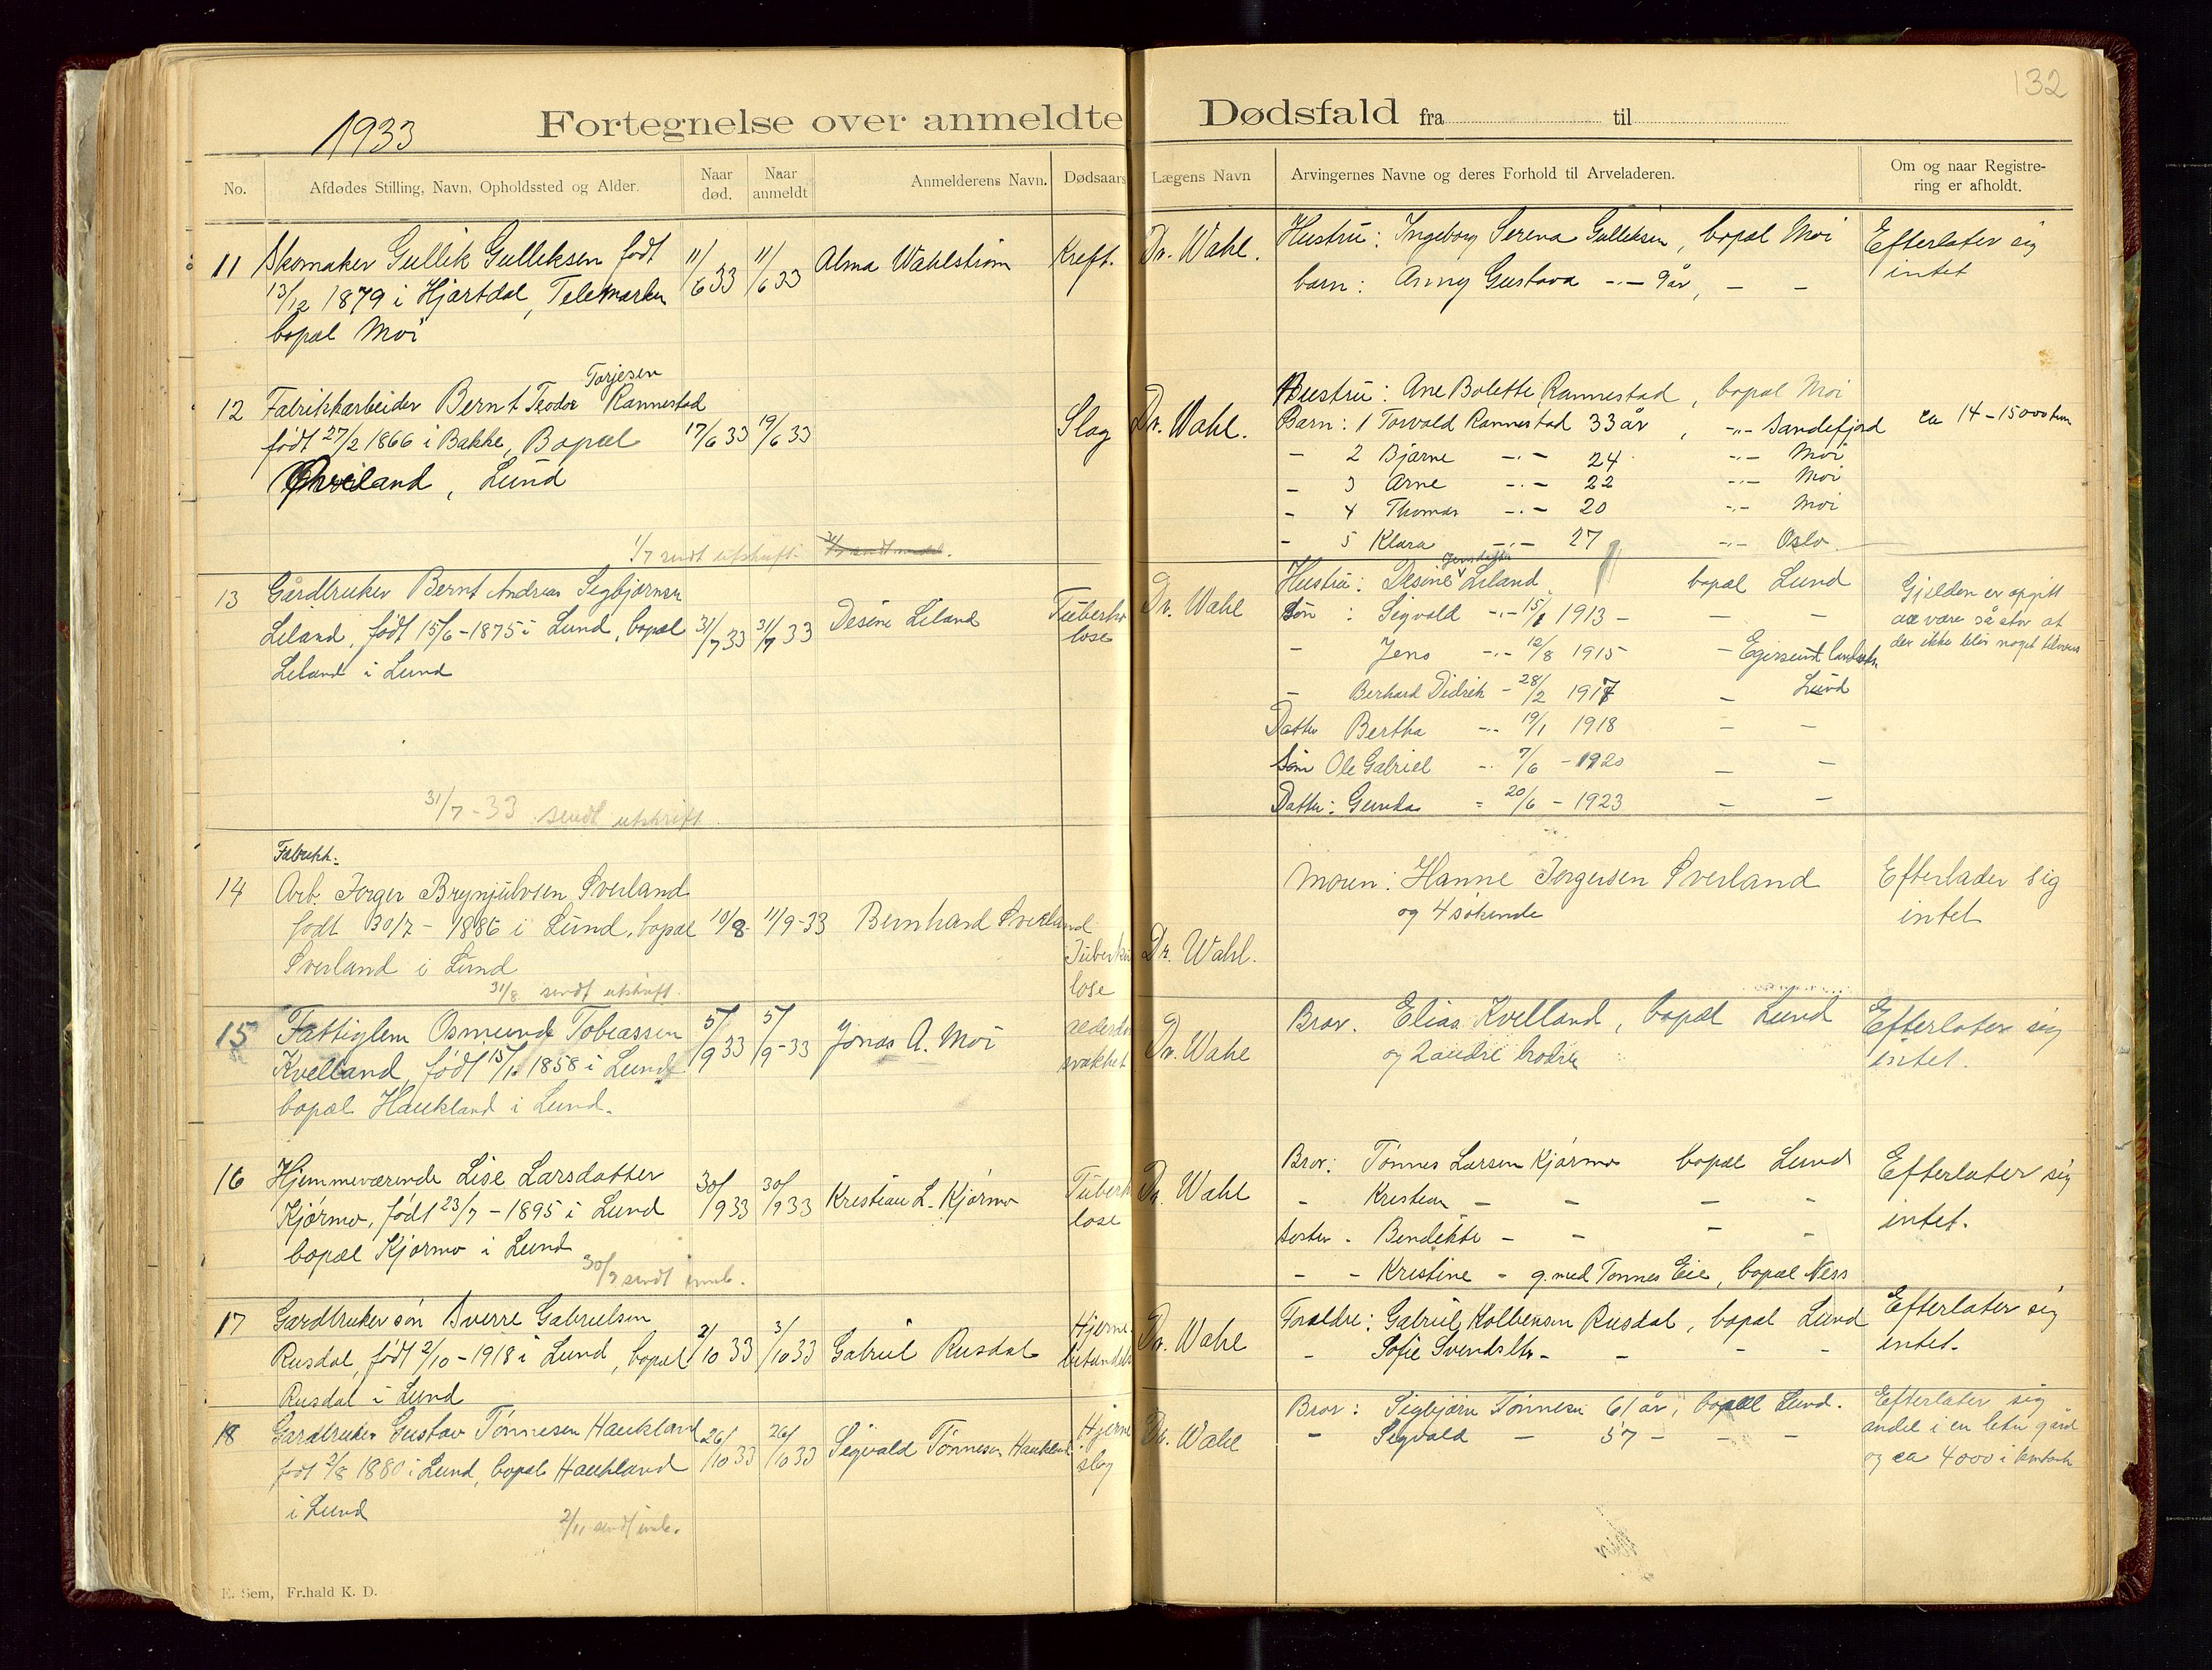 132
1933
Fortegnelse over anmeldte Dødsfald fra til
No. Afdødes Stilling, Navn, Opholdssted og Alder. Naar død. Naar anmeldt Anmelderens Navn. Dødsaars Lægens Navn Arvingernes Navne og deres Forhold til Arveladeren. Om og naar Registrering er afholdt.
11 Skomaker Gullik Gulliksen født 11/6 33 11/6 33 Alma Wahlstrøm Kreft. Dr. Wahl.
13/12 1879 i Hjartdal, Telemarken
bopæl Moi
Hustru: Ingeborg Serena Gulliksen, bopæl Moi
barn: Anny Gustava -"- 9 år, - -
Efterlater sig
intet
Torjesen
12 Fabrikkarbeider Bernt Teodor Rannestad
født 27/2 1866 i Bakke, Bopæl 17/6 33 19/6 33 Slag Dr. Wahl.
Øvreland, Lund
1/7 sendt utskrift.
Hustru: Ane Bolette Rannestad, bopæl Moi
Barn: 1 Torvald Rannestad 33 år, -"- Sandefjord
- 2 Bjarne -"- 24 -"- Moi
- 3 Arne -"- 22 -"- Moi
- 4 Thomas -"- 20 -"- Moi
- 5 Klara -"- 27 -"- Oslo
ca 14-15000 kr
13 Gårdbruker Bernt Andreas Sigbjørnsen
Leland, født 15/6-1875 i Lund, bopæl 31/7 33 31/7 33 Desine Leland Tuberkulose Dr. Wahl
Leland i Lund
31/7-33 sendt utskrift.
Jensdatter
Hustru: Desine Leland bopæl Lund
Søn: Sigvald -"- 15/1 1913 - - -
- Jens -"- 12/8 1915 - Egersund landsokn
- Berhard Didrik - 28/2 1917 - Lund
Datter Bertha -"- 19/1 1918 - -
Søn Ole Gabriel -"- 7/6 - 1920 - -
Datter: Gunda = 20/6 - 1923 - -
Gjelden er opgitt
aa være så stor at
der ikke blir noget tilovers
Fabrikk.
14 Arb. Jørger Brynjulvsen Øverland
født 30/7 - 1886 i Lund, bopæl 10/8 11/9-33 Bernhard Øverland
Øverland i Lund Tuberkulose Dr. Wahl.
31/8 sendt utskrift.
Moren: Hanne Jørgersen Øverland
og 4 søskende
Efterlader sig
intet
15 Fattiglem Osmund Tobiassen 5/9 33 5/9-33 Jonas A. Moi alderdomsvakhet Dr. Wahl
Kvelland, født 15/1 1858 i Lund
bopæl Haukland i Lund.
Bror. Elias Kvelland, bopæl Lund
og 2 andre brødre
Efterlater sig
intet.
16 Hjemmeværende Lise Larsdatter
Kjørmo, født 23/7 - 1895 i Lund 30/9 33 30/9 33 Kristian L. Kjørmo Tuberkulose Dr. Wahl
bopæl Kjørmo i Lund
30/9 sendt innb.
Bror: Tønnes Larsen Kjørmo bopæl Lund
- Kristian - - - -
søster - Bendikte - - - -
- - Kristine - g. med Tønnes Eie, bopæl Ness
Efterlater sig
intet.
17 Gardbruker søn Sverre Gabrielsen
Rusdal, født 2/10-1918 i Lund, bopæl 2/10 33 3/10 33 Gabriel Rusdal Hjernebetændelse Dr. Wahl
Rusdal i Lund
Foreldre: Gabriel Kolbensen Rusdal, bopæl Lund
- Sofie Svendsdtr - - - -
Efterlater sig
intet.
18 Gardbruker Gustav Tønnesen Haukland 26/10 33 26/10 33 Sigvald Tønnesen Haukland Hjerneslag Dr. Wahl
født 2/8 1880 i Lund, bopæl Haukland
i Lund
2/11 sendt innb.
Bror: Sigbjørn Tønnesen 61 år, bopæl Lund.
- Sigvald - 57 - - -
Efterlater sig
andel i en liten gård
og ca 4000 i kontant
E. Sem, Fr.hald K. D.